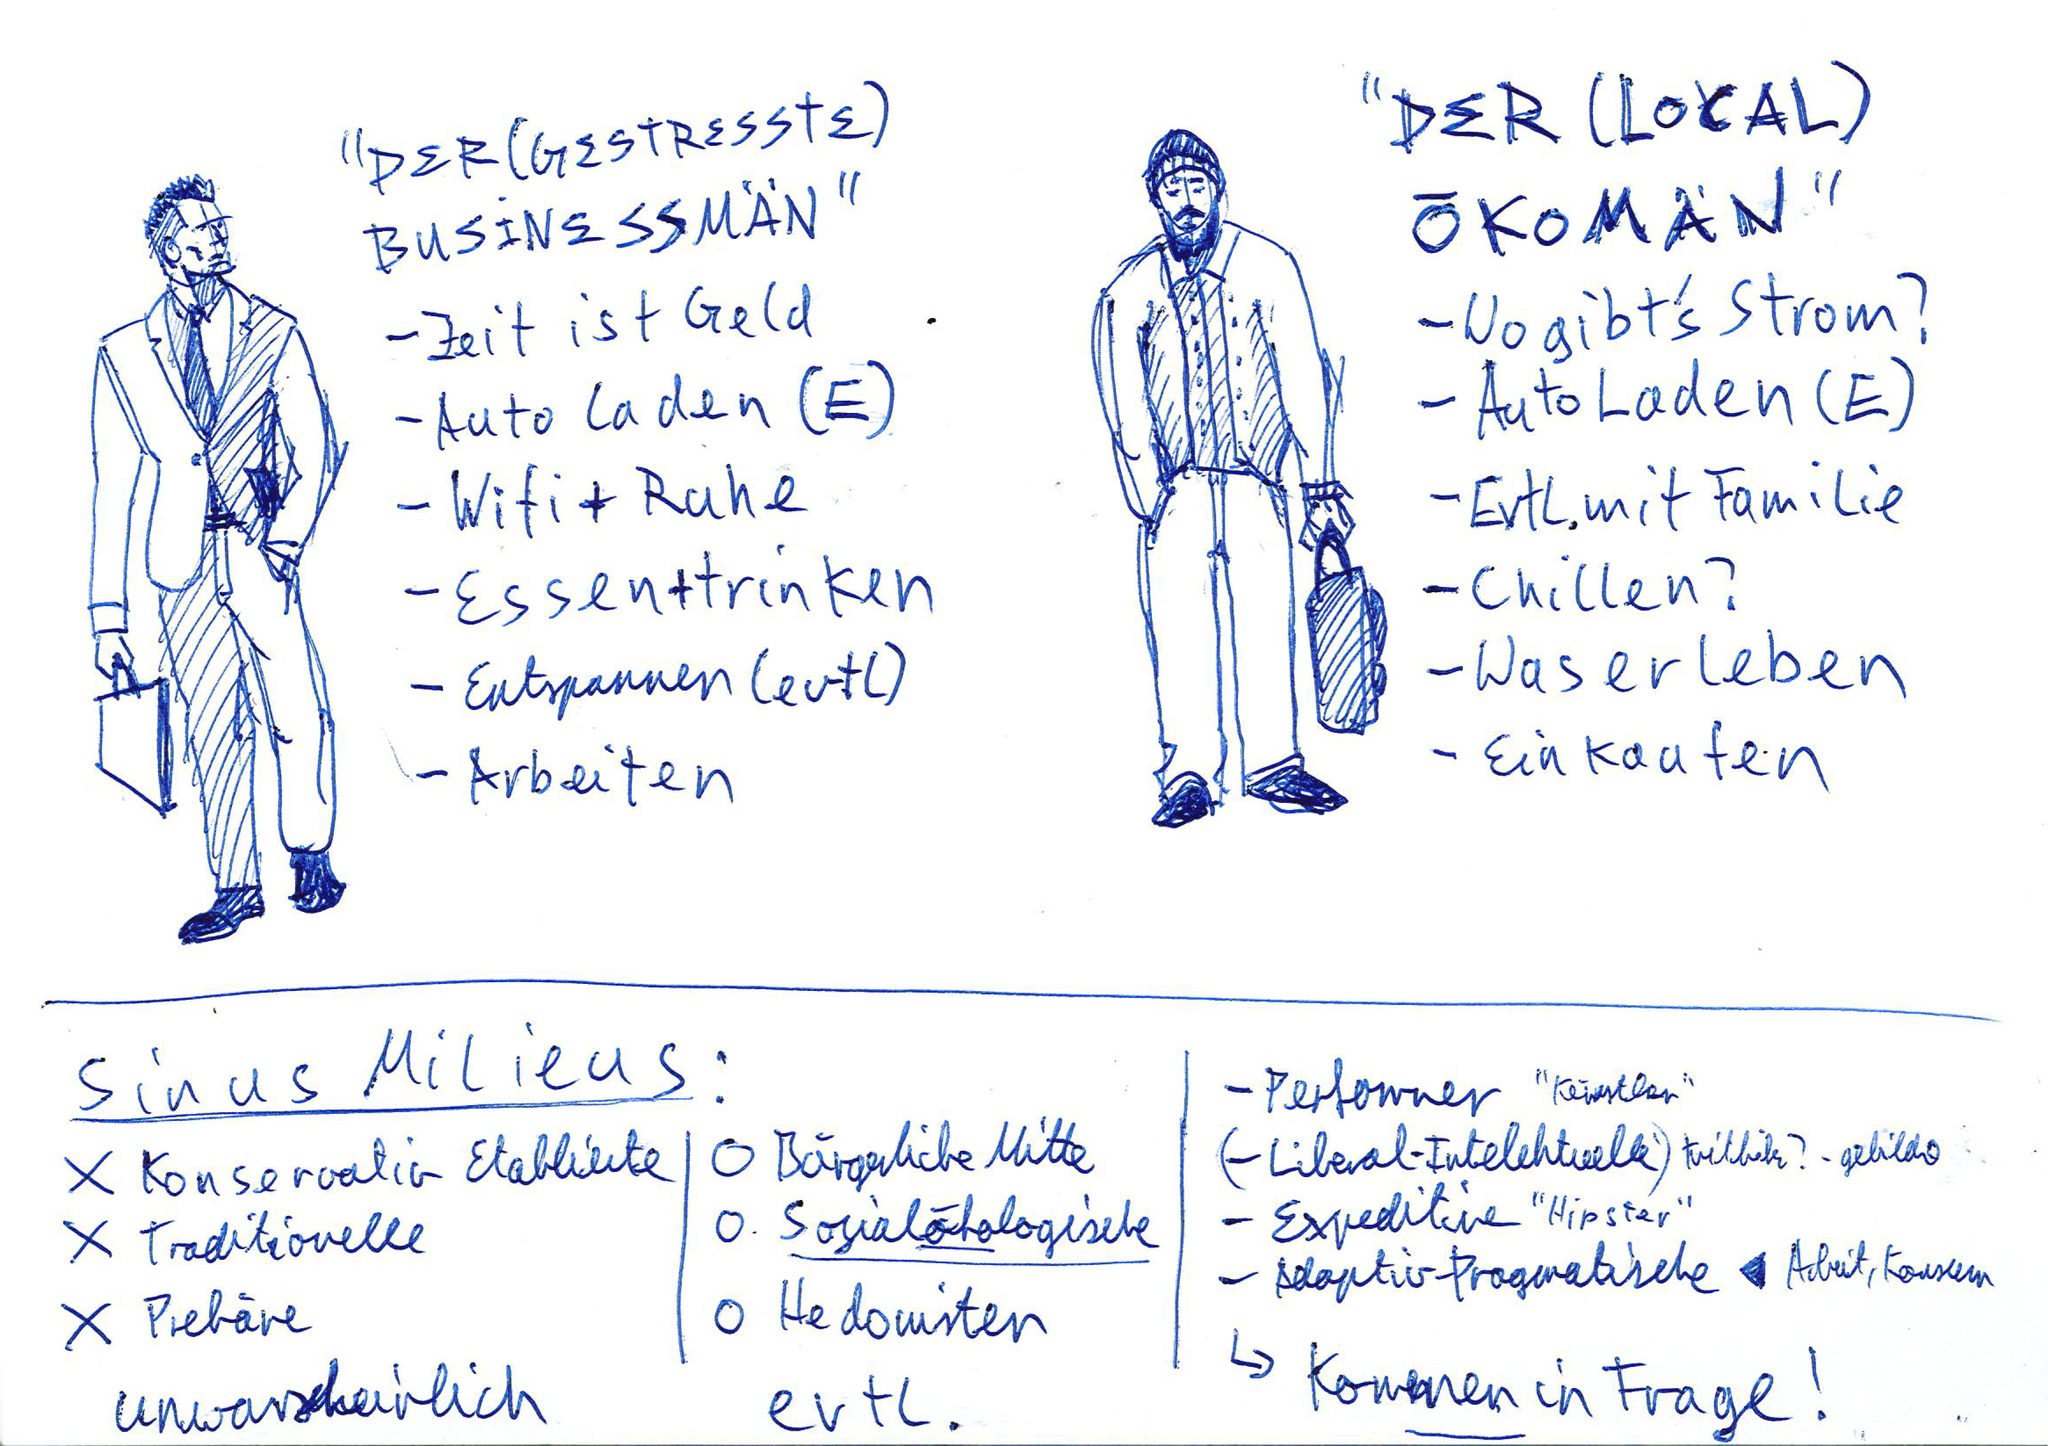 "DER (GESTRESSTE)
BUSINESSMÄN"
- Zeit ist Geld
- Auto laden (E)
- Wifi + Ruhe
- Essen + trinken
- Entspannen (evtl)
- Arbeiten
"DER (LOCAL)
ÖKOMÄN"
- Wo gibt's Strom?
- Auto Laden (E)
- Evtl. mit Familie
- Chillen?
- Was erleben
- Einkaufen
Sinus Milieus:
X Konservativ Etablierte
X Traditionelle
X Prekäre
unwarscheinlich
O Bürgerliche Mitte
O Sozialökologische
O Hedonisten
evtl.
- Performer "Künstler"
(- Liberal-Intelektuelle)
- Expeditive "Hipster"
- Adaptiv-Pragmatische ◄ Arbeit, Konsum
↳ Kommen in Frage!